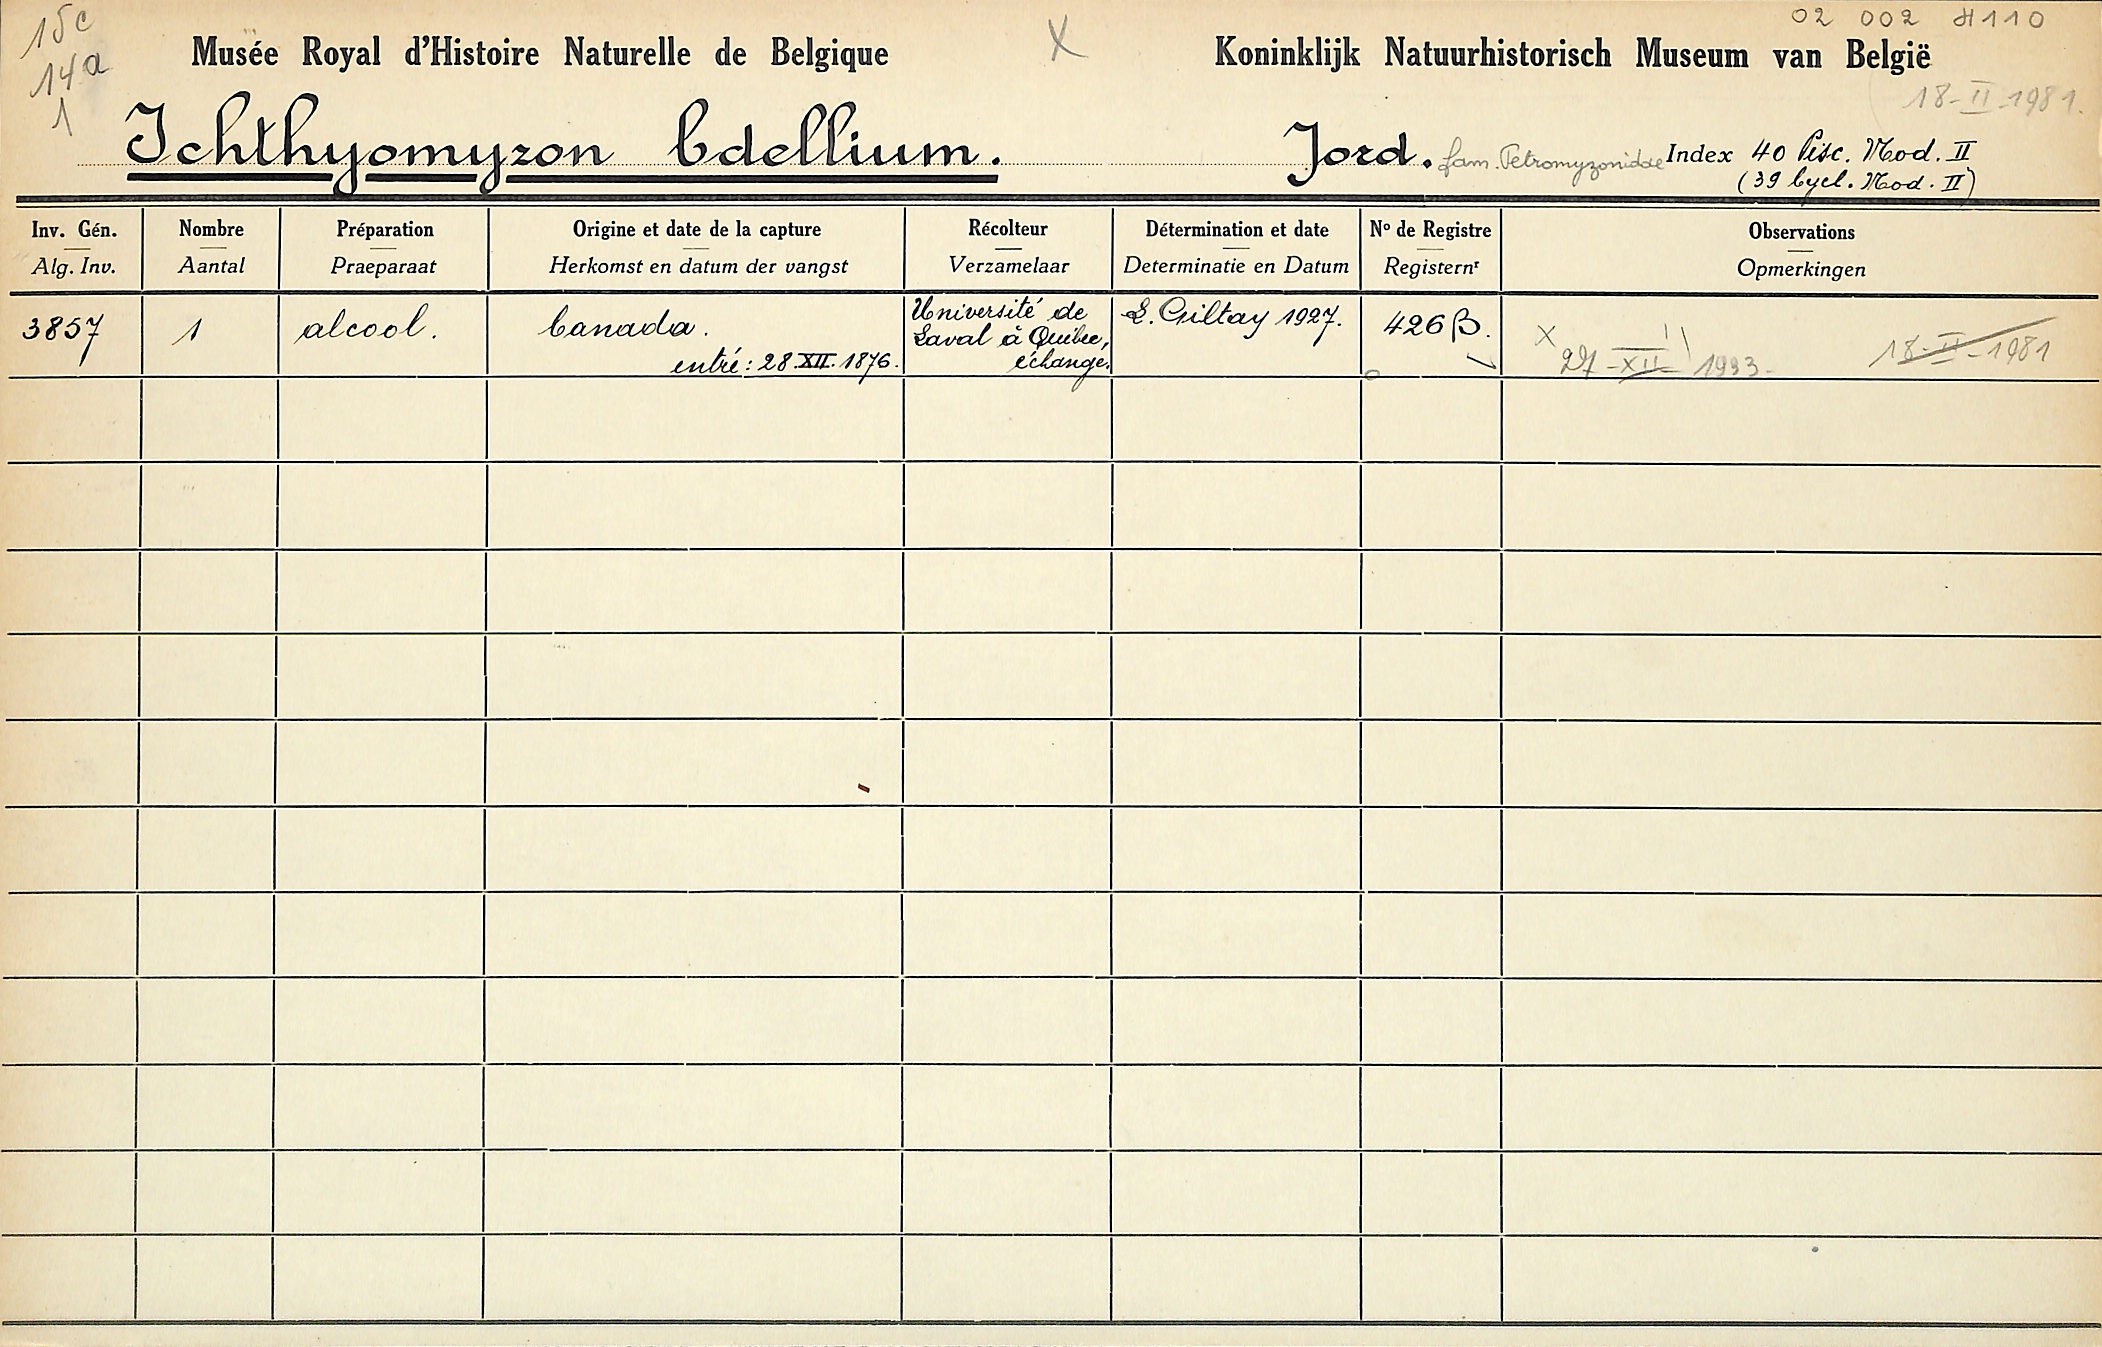 15c
14a
1
02 002 H110
Musée Royal d'Histoire Naturelle de Belgique
X
Koninklijk Natuurhistorisch Museum van België
18-II-1981.
Ichthyomyzon bdellium. Jord. fam. Petromyzonidae Index 40 Pisc. Mod. II
(39 Cycl. Mod. II)
Inv. Gén. Nombre Préparation Origine et date de la capture Récolteur Détermination et date No de Registre Observations
Alg. Inv. Aantal Praeparaat Herkomst en datum der vangst Verzamelaar Determinatie en Datum Registernr Opmerkingen
3857 1 alcool. Canada. Université de L. Giltay 1927. 426 β. X
Laval à Québec, 18-II-1981
entré: 28.XII.1876. échange. 27-XII 1993-